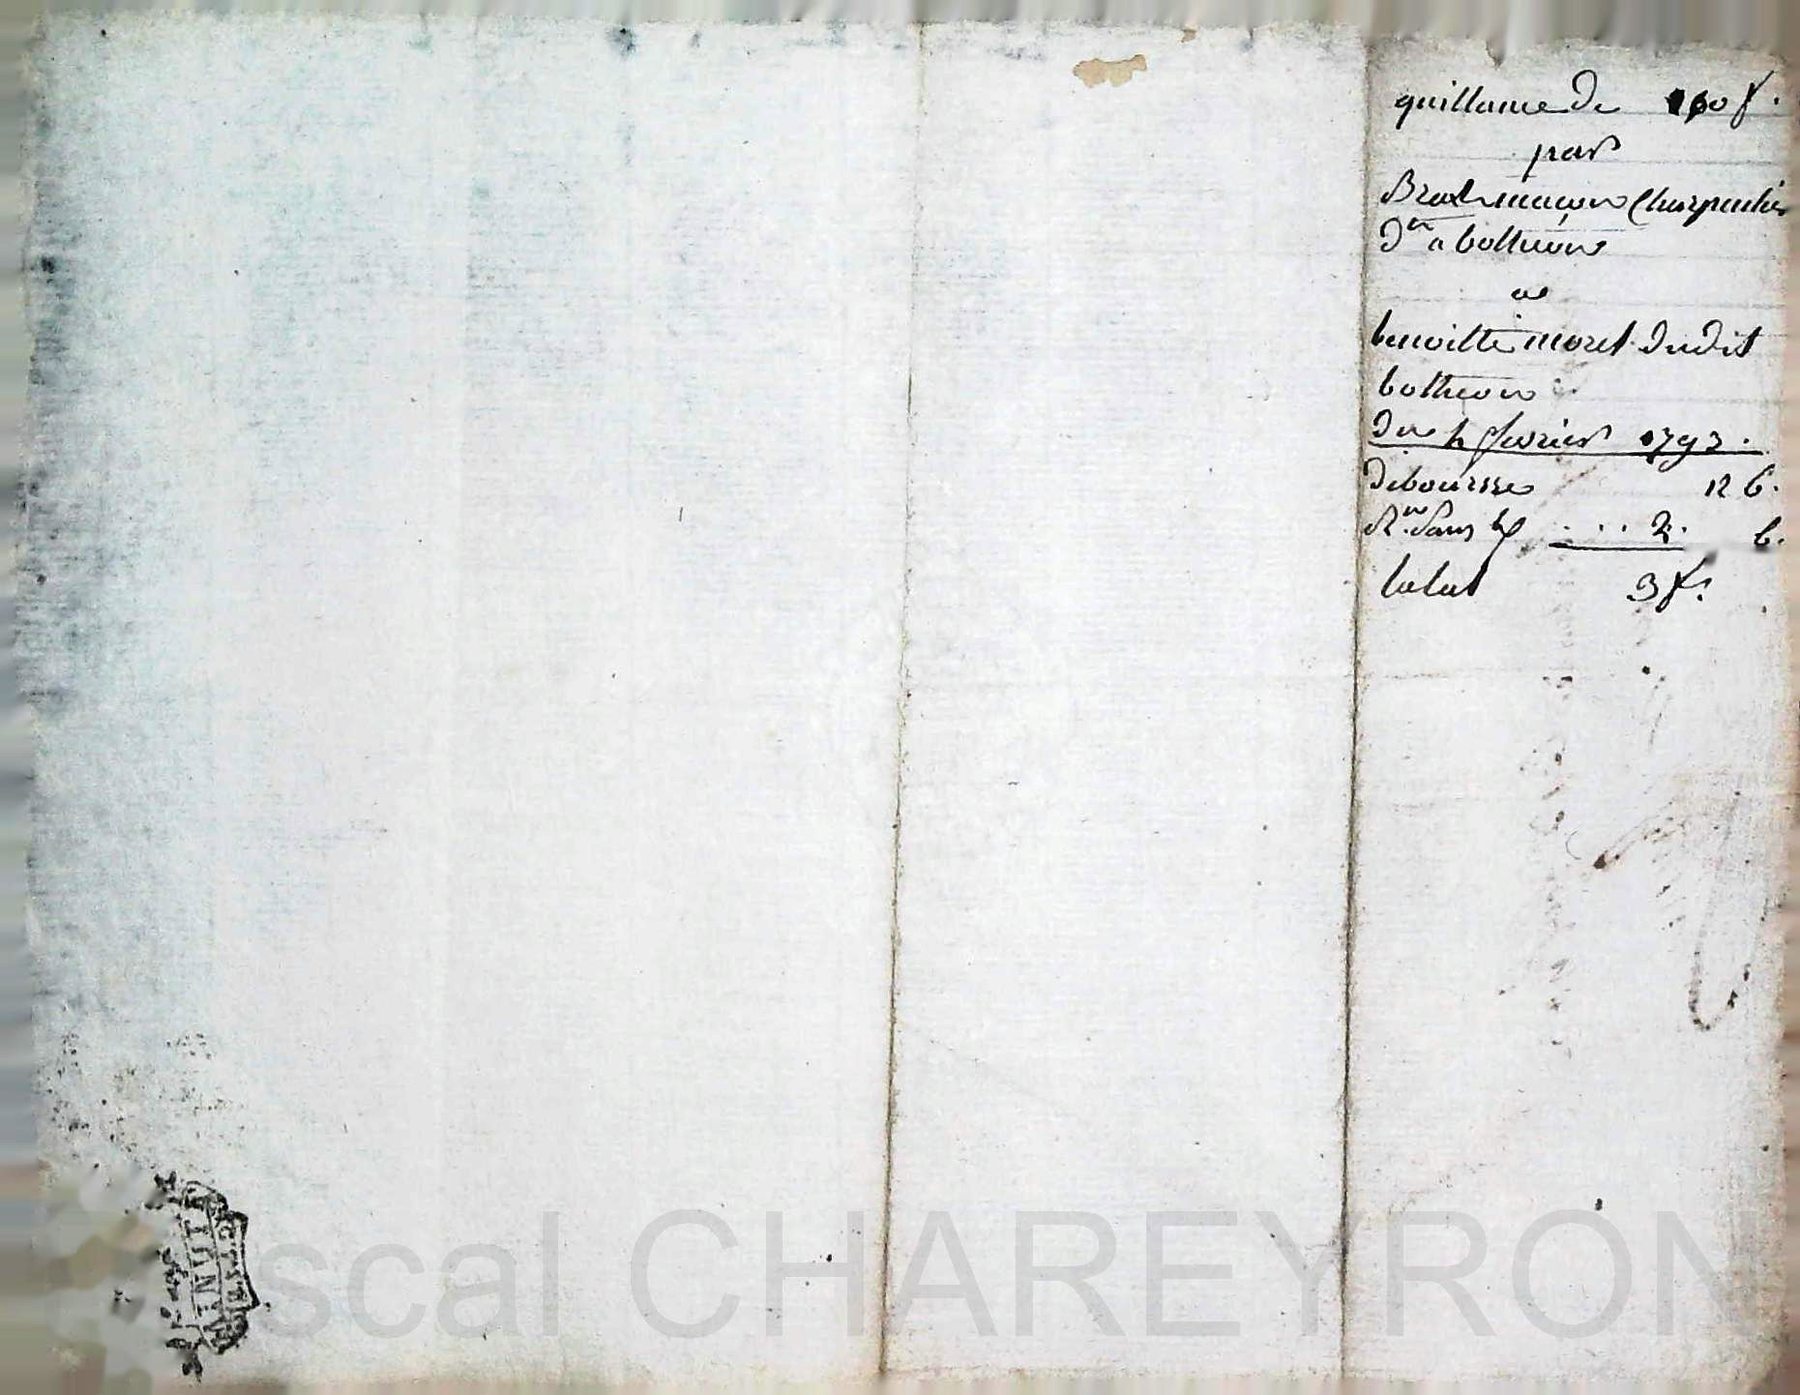 quittance de 160 f.
par
Brat maçon Charpentier
d.en a botheon
a
benoitte moret dudit
botheon
du 4 fevrier 1793.
debourse 12 6.
R.on sans 2. 6.
total 3 f.
scal CHAREYRON